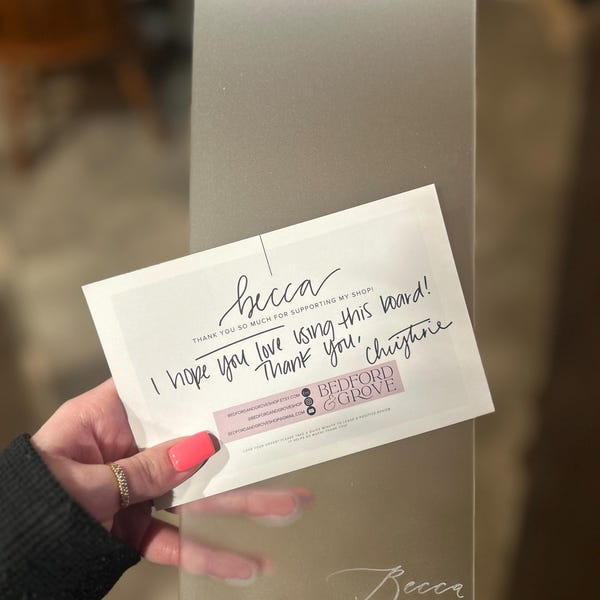 becca
THANK YOU SO MUCH FOR SUPPORTING MY SHOP!
I hope you love using this board!
Thank you,
Christine
BEDFORDANDGROVESHOP.ETSY.COM
@BEDFORDANDGROVESHOP
BEDFORDANDGROVESHOP@GMAIL.COM
BEDFORD
& GROVE
LOVE YOUR ORDER? PLEASE TAKE A QUICK MINUTE TO LEAVE A POSITIVE REVIEW
IT HELPS SO MUCH! THANK YOU!
Becca